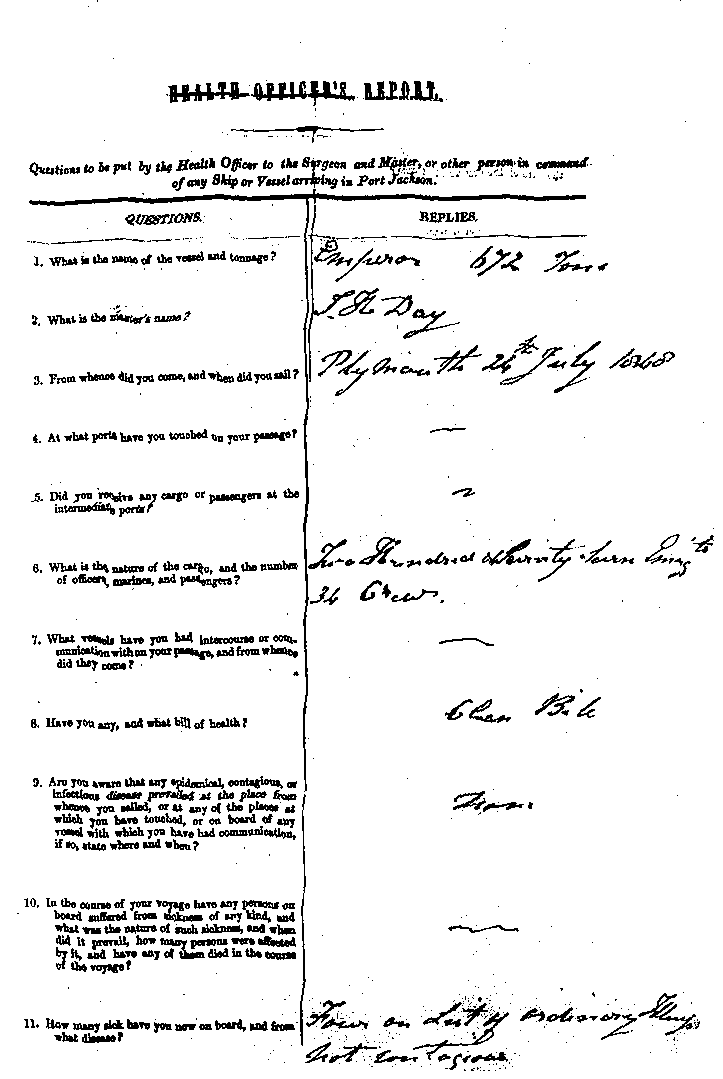 HEALTH OFFICER'S REPORT.
Questions to be put by the Health Officer to the Surgeon and Master, or other person in command
of any Ship or Vessel arriving in Port Jackson.
QUESTIONS.
REPLIES.
1. What is the name of the vessel and tonnage?
Emperor 672 Tons
2. What is the master's name?
Day
3. From whence did you come, and when did you sail?
Plymouth 24th July 1848
4. At what ports have you touched on your passage?
5. Did you receive any cargo or passengers at the
intermediate ports?
6. What is the nature of the cargo, and the number
of officers, marines, and passengers?
Two Hundred & Seventy Seven Emigts
36 Crew.
7. What vessels have you had intercourse or com-
munication with on your passage, and from whence
did they come?
8. Have you any, and what bill of health?
Clean Bill
9. Are you aware that any epidemical, contagious, or
infectious disease prevailed at the place from
whence you sailed, or at any of the places at
which you have touched, or on board of any
vessel with which you have had communication,
if so, state where and when?
None.
10. In the course of your voyage have any persons on
board suffered from sickness of any kind, and
what was the nature of such sickness, and when
did it prevail, how many persons were affected
by it, and have any of them died in the course
of the voyage?
11. How many sick have you now on board, and from
what disease?
Four on List of ordinary
not contagious